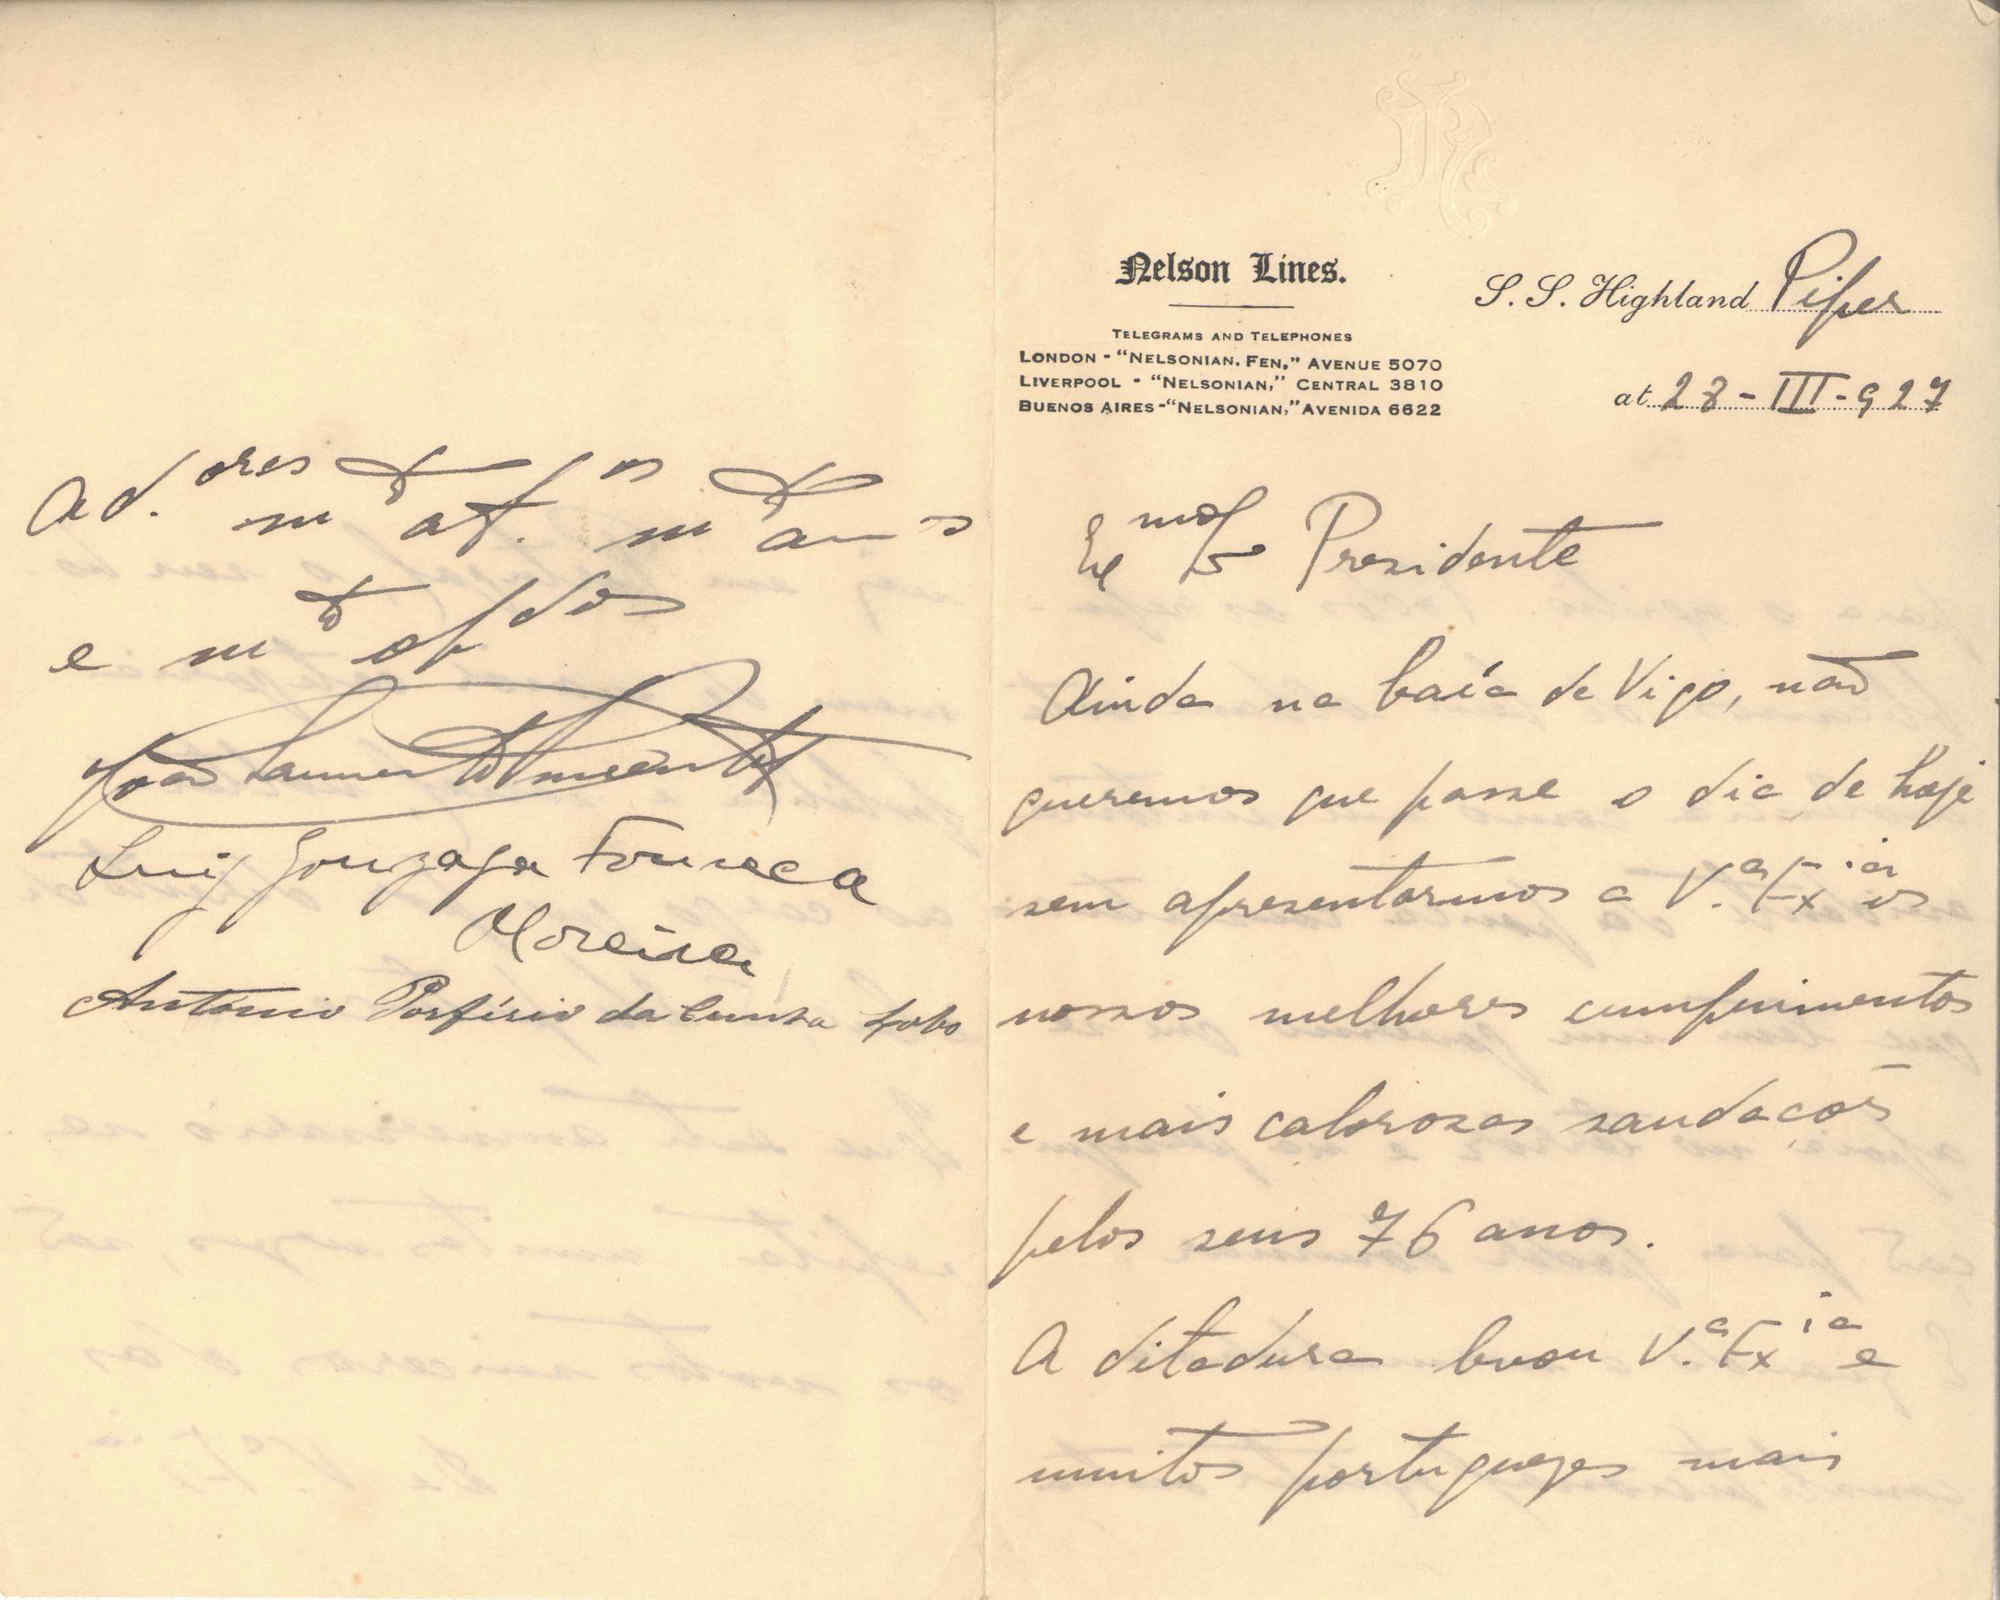 Nelson Lines.
TELEGRAMS AND TELEPHONES
LONDON - "NELSONIAN. FEN," AVENUE 5070
LIVERPOOL - "NELSONIAN," CENTRAL 3810
BUENOS AIRES - "NELSONIAN," AVENIDA 6622
S. S. Highland Piper
at 28-III-927
Ex mo Sr Presidente
Ainda na baía de Vigo, não
queremos que passe o dia de hoje
sem apresentarmos a V.a Ex ia os
nossos melhores cumprimentos
e mais calorosas saudações
pelos seus 76 anos.
A ditadura levou V.a Ex ia e
muitos portuguezes mais
ad.ores mto at.os mto
e mto
Luiz Gonzaga Fonseca
Moreira
Antonio Porfírio da Cunha Lobo